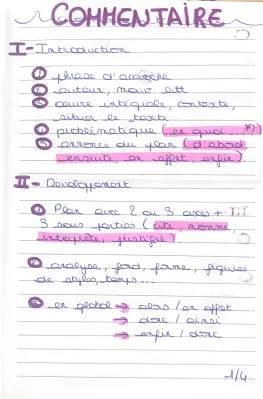 COMMENTAIRE
I - Introduction
① phrase d'accroche
② auteur, mouv. litt
③ oeuvre intégrale, contexte,
situer le texte
④ problématique (en quoi ...?)
⑤ annonce du plan (d'abord
ensuite, en effet, enfin)
II - Développement
① Plan avec 2 ou 3 axes + III
3 sous parties (cite, nomme,
interprète, justifie)
② analyse, fond, forme, figures
de styles, temps...
③ en global → alors / en effet
→ donc / ainsi
→ enfin / donc
1/4